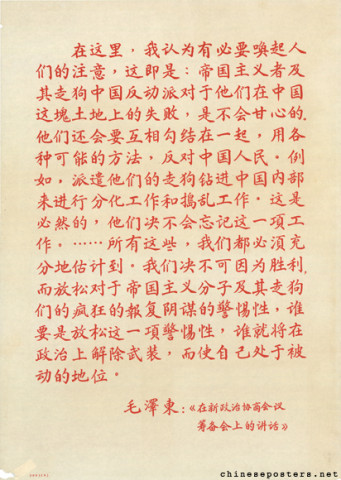 在这里，我认为有必要唤起人
们的注意，这即是：帝国主义者及
其走狗中国反动派对于他们在中国
这块土地上的失败，是不会甘心的。
他们还会要互相勾结在一起，用各
种可能的方法，反对中国人民。例
如，派遣他们的走狗钻进中国内部
来进行分化工作和捣乱工作。这是
必然的，他们决不会忘记这一项工
作。……所有这些，我们都必须充
分地估计到。我们决不可因为胜利，
而放松对于帝国主义分子及其走狗
们的疯狂的报复阴谋的警惕性，谁
要是放松这一项警惕性，谁就将在
政治上解除武装，而使自己处于被
动的地位。
毛澤東：《在新政治协商会议
筹备会上的讲话》
chineseposters.net